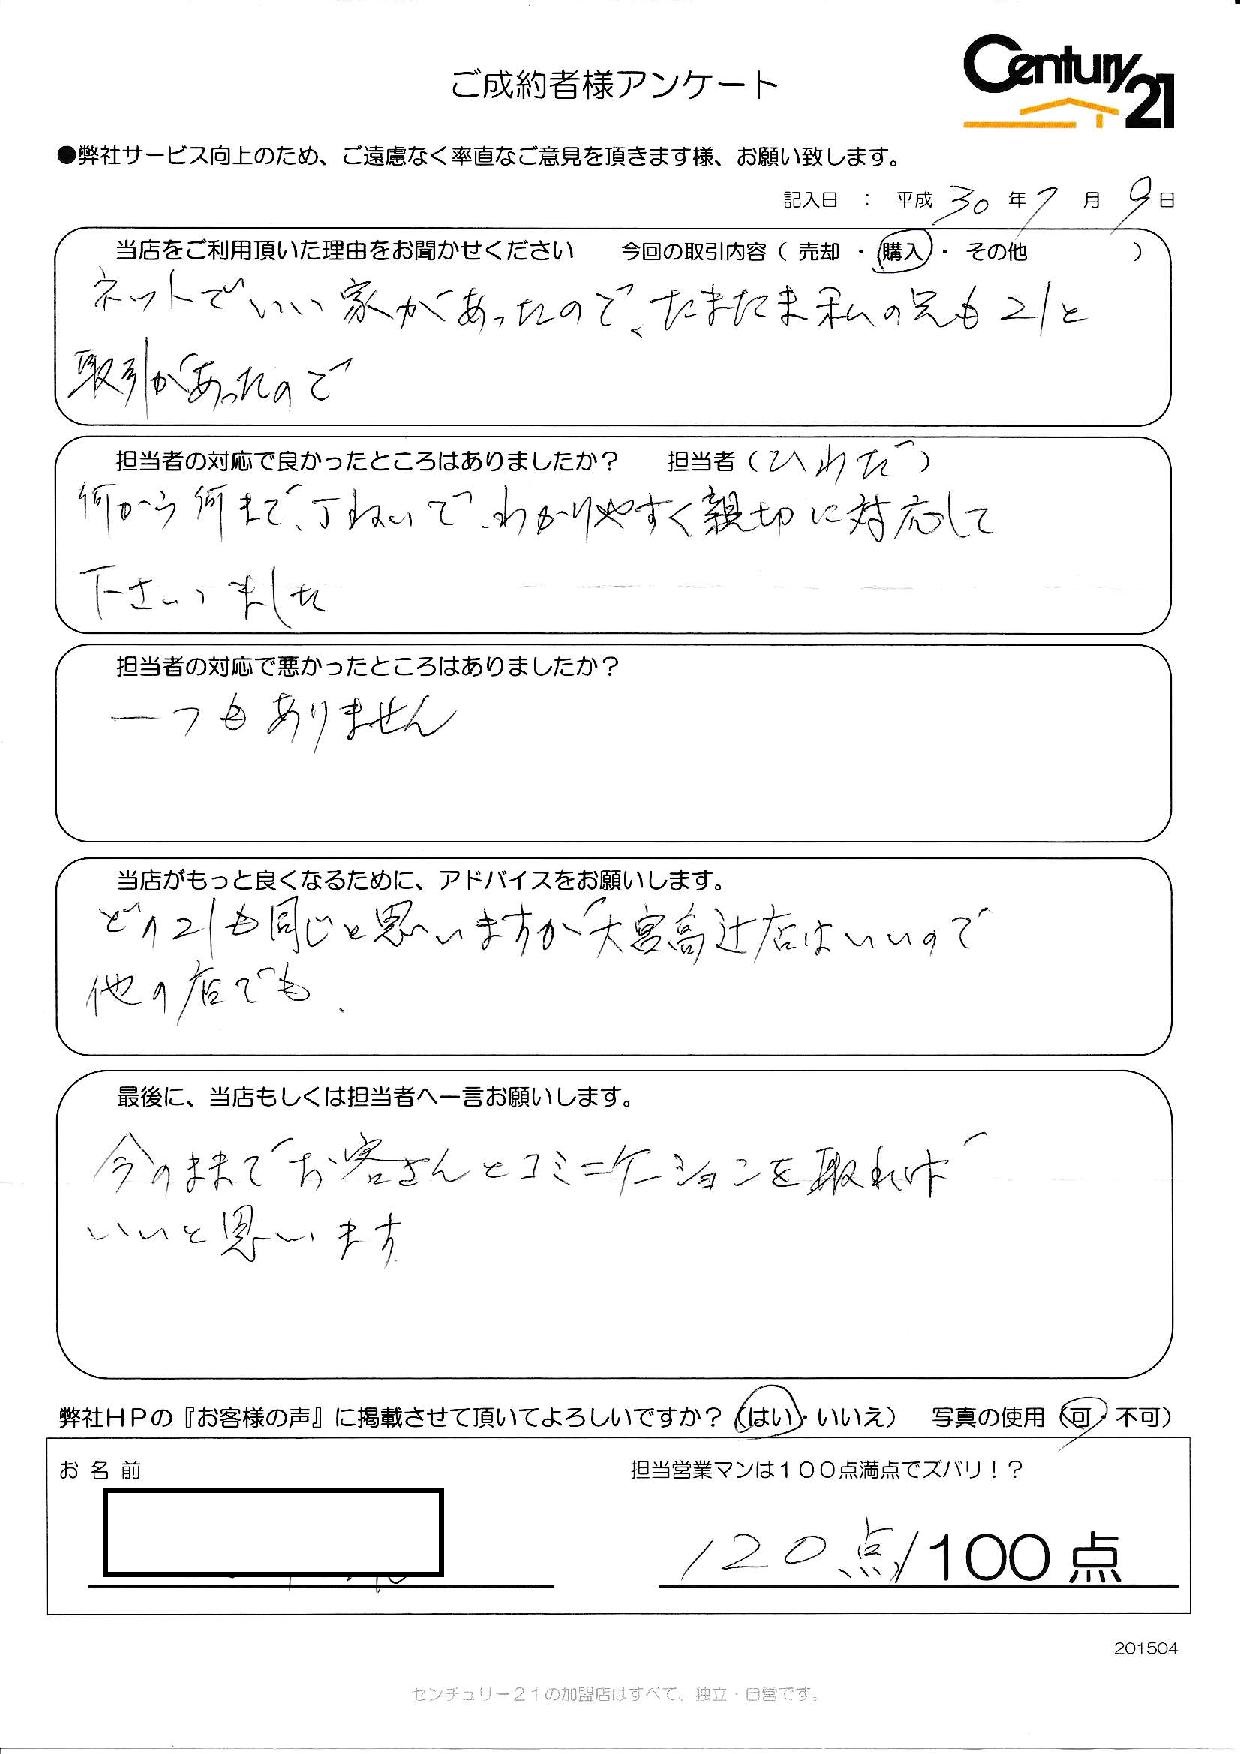 Century 21
ご成約者様アンケート
●弊社サービス向上のため、ご遠慮なく率直なご意見を頂きます様、お願い致します。
記入日 : 平成 30 年 7 月 9 日
当店をご利用頂いた理由をお聞かせください 今回の取引内容 ( 売却 ・ 購入 ・ その他 )
ネットでいい家があったので、たまたま私の兄も21と
取引があったので
担当者の対応で良かったところはありましたか? 担当者 (ひわだ)
何から何まで、丁ねいで、わかりやすく親切に対応して
下さいました
担当者の対応で悪かったところはありましたか?
一つもありません
当店がもっと良くなるために、アドバイスをお願いします。
どの21も同じと思いますが大宮高辻店はいいので
他の店でも.
最後に、当店もしくは担当者へ一言お願いします。
今のままでお客さんとコミニケーションを取れば
いいと思います
弊社HPの『お客様の声』に掲載させて頂いてよろしいですか? (はい・いいえ) 写真の使用 (可・不可)
お名前 担当営業マンは100点満点でズバリ!?
120点/100点
201504
センチュリー21の加盟店はすべて、独立・自営です。